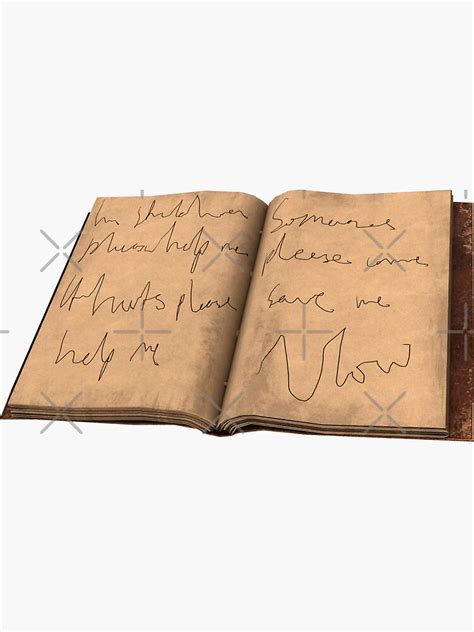 please help me
It hurts please
help me
Someone
please come
save me
Now